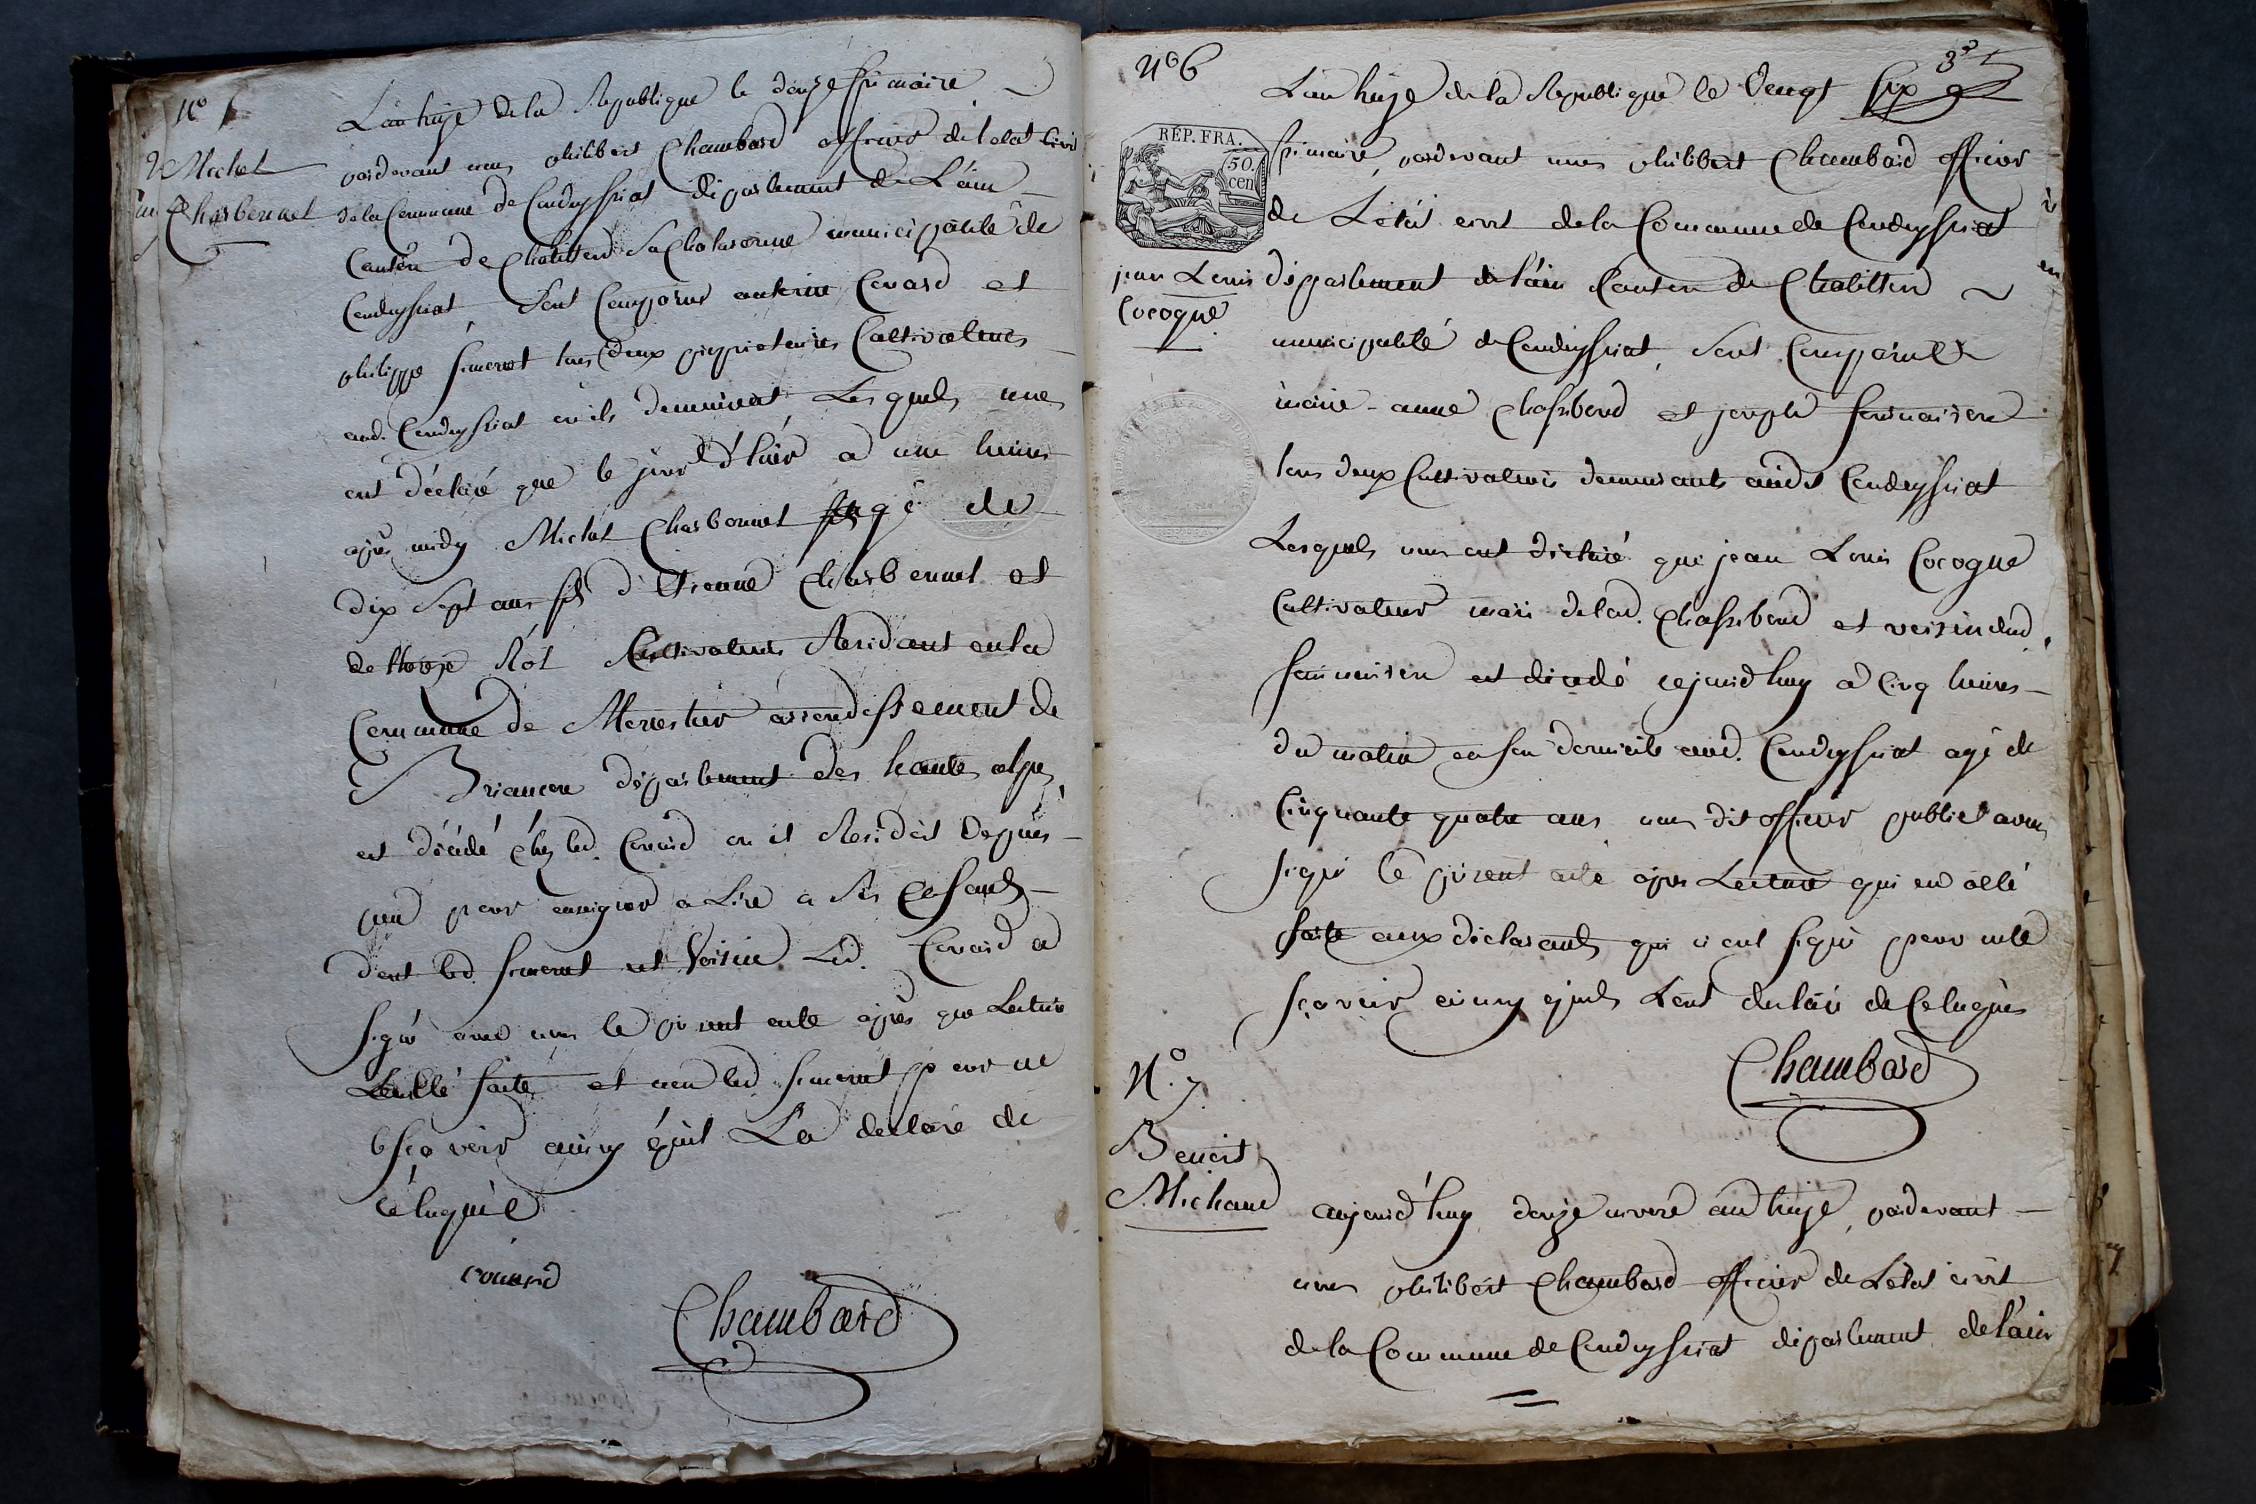 N°
Michel
Charbonnel
L'an treize de la Republique le douze frimaire
pardevant nous philibert Chambard officier de l'etat Civil
de la Commune de Condeyssiat departement de L'ain
Canton de Chatillon Sa Chalaronne municipalité de
Condeyssiat, Sont Comparus antoine Covard et
philippe simonet tous deux proprietaires Cultivateurs
aud. Condeyssiat ou ils demeurent, Lesquels nous
ont déclaré que le jour d'hier a une heure
après midy Michel Charbonnel agé de
dix sept ans fils d'Etienne Charbonnel et
de Rose Rôt Cultivateurs Residant en la
Commune de Monestier arrondissement de
Briancon département des hautes alpes,
est décédé chez led. Covard ou il Residoit Depuis
peu pour enseigner a Lire a Ses Enfants
dont led. simonet est Voisin Led. Covard a
signé avec nous le présent acte après que Lecture
Leur été faite et non led. simonet pour ne
sçavoir ainsy qu'il L'a declaré de
ce requis
covard
Chambard
N° 6
3
L'an treize de la Republique le Vingt six
RÉP. FRA.
50 cen
frimaire, pardevant nous philibert Chambard officier
de L'etat civil de la Commune de Condeyssiat
jean Louis
Cocogne
département de l'ain Canton de Chatillon
municipalité de Condeyssiat, Sont Comparus
marie-anne Chassiboud et joseph
tous deux Cultivateurs demeurants audit Condeyssiat
Lesquels nous ont déclaré que jean Louis Cocogne
Cultivateur mari de lad. Chassiboud et voisin dud.
est décédé cejourd'huy a Cinq heures
du matin en son domicile aud. Condeyssiat agé de
Cinquante quatre ans nous dit officier public avons
signé le présent acte après Lecture qui en a été
faite aux déclarants qui n'ont signé pour ne
sçavoir ainsy qu'ils L'ont déclaré de Ce requis
Chambard
N° 7
Benoit
Michaud
aujourd'huy douze nivose an treize, pardevant
nous philibert Chambard officier de L'etat civil
de la Commune de Condeyssiat département de l'ain